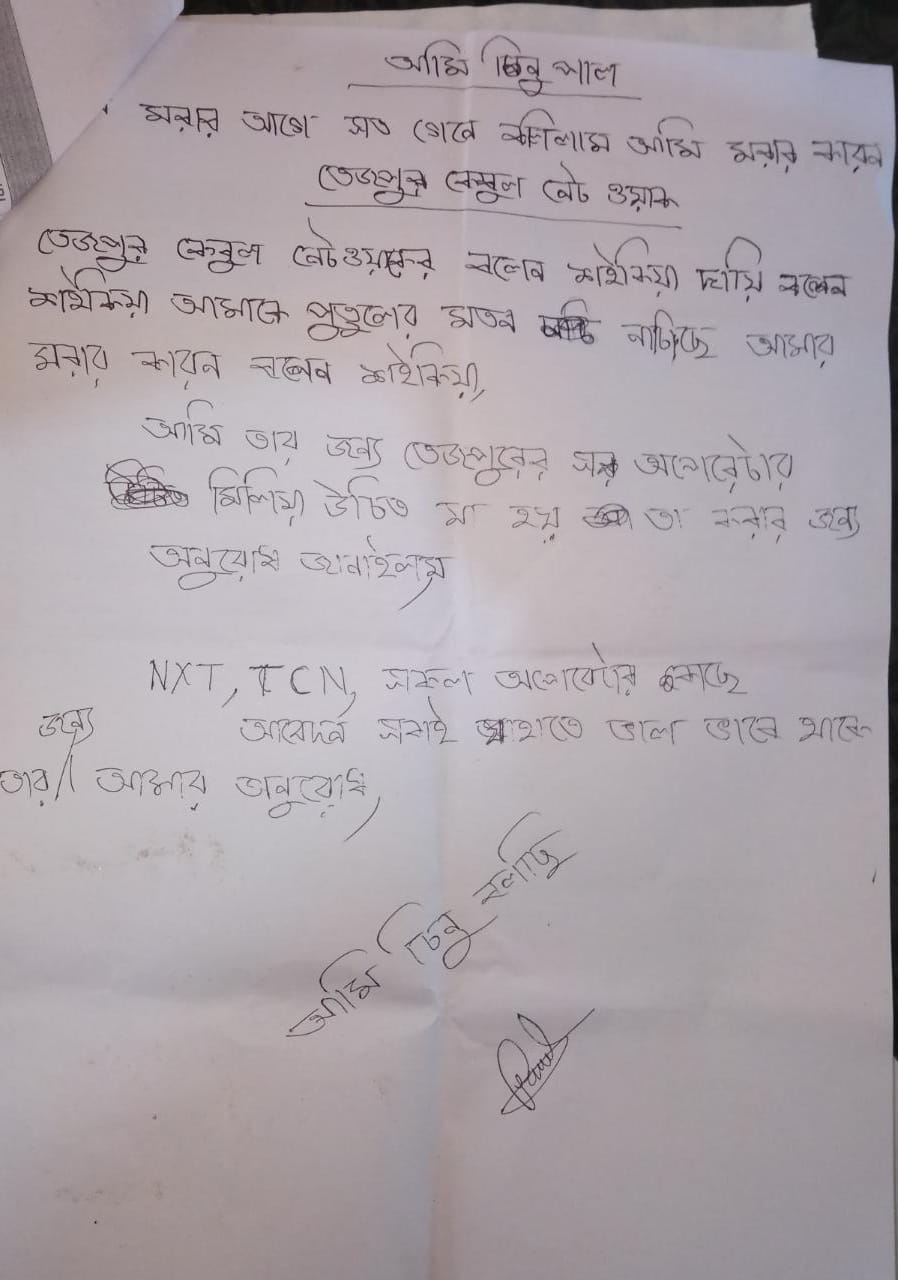 আমি চিনু পাল
মরার আগে সত গেনে বলিলাম আমি মরার কারন
তেজপুর কেবুল নেট ওয়াক
তেজপুর কেবুল নেটওয়াকের বলেন শইকিয়া দায়ি বলেন
শইকিয়া আমাকে পুতুলের মতন নাচিছে আমার
মরার কারন বলেন শইকিয়া,
আমি তার জন্য তেজপুরের সব অপেরেটার
মিলিয়া উচিত যা হয় তা করার জন্য
অনুরোধ জানাইলাম
NXT, TCN, সকল অপেরেটার কাছে
আবেদন সবাই যাহাতে ভাল ভাবে থাকে
তার জন্য আমার অনুরোধ,
আমি চিনু বলছি
Paul